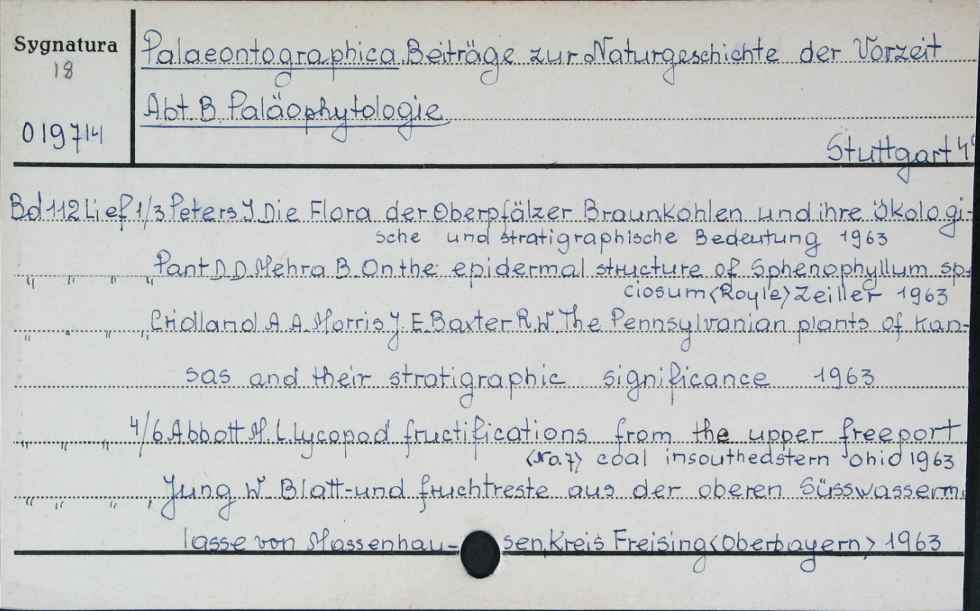 Sygnatura
18
019714
Palaeontographica. Beiträge zur Naturgeschichte der Vorzeit
Abt. B. Paläophytologie
Stuttgart
Bd 112 Lief 1/3 Peters J. Die Flora der Oberpfälzer Braunkohlen und ihre ökologi-
sche und stratigraphische Bedeutung 1963
" " " " Pant D.D. Mehra B. On the epidermal structure of Sphenophyllum spe
ciosum <Royle> Zeiller 1963
" " " " Cridland A.A. Morris J. E. Baxter R.W. The Pennsylvanian plants of Kan-
sas and their stratigraphic significance 1963
" " " 4/6 Abbott M. L. Lycopod fructifications from the upper freeport
<No.7> coal in southedstern Ohio 1963
" " " " Jung W. Blatt- und fruchtreste aus der oberen Süsswasserm
lasse von Massenhau- sen, Kreis Freising <Oberbayern> 1963